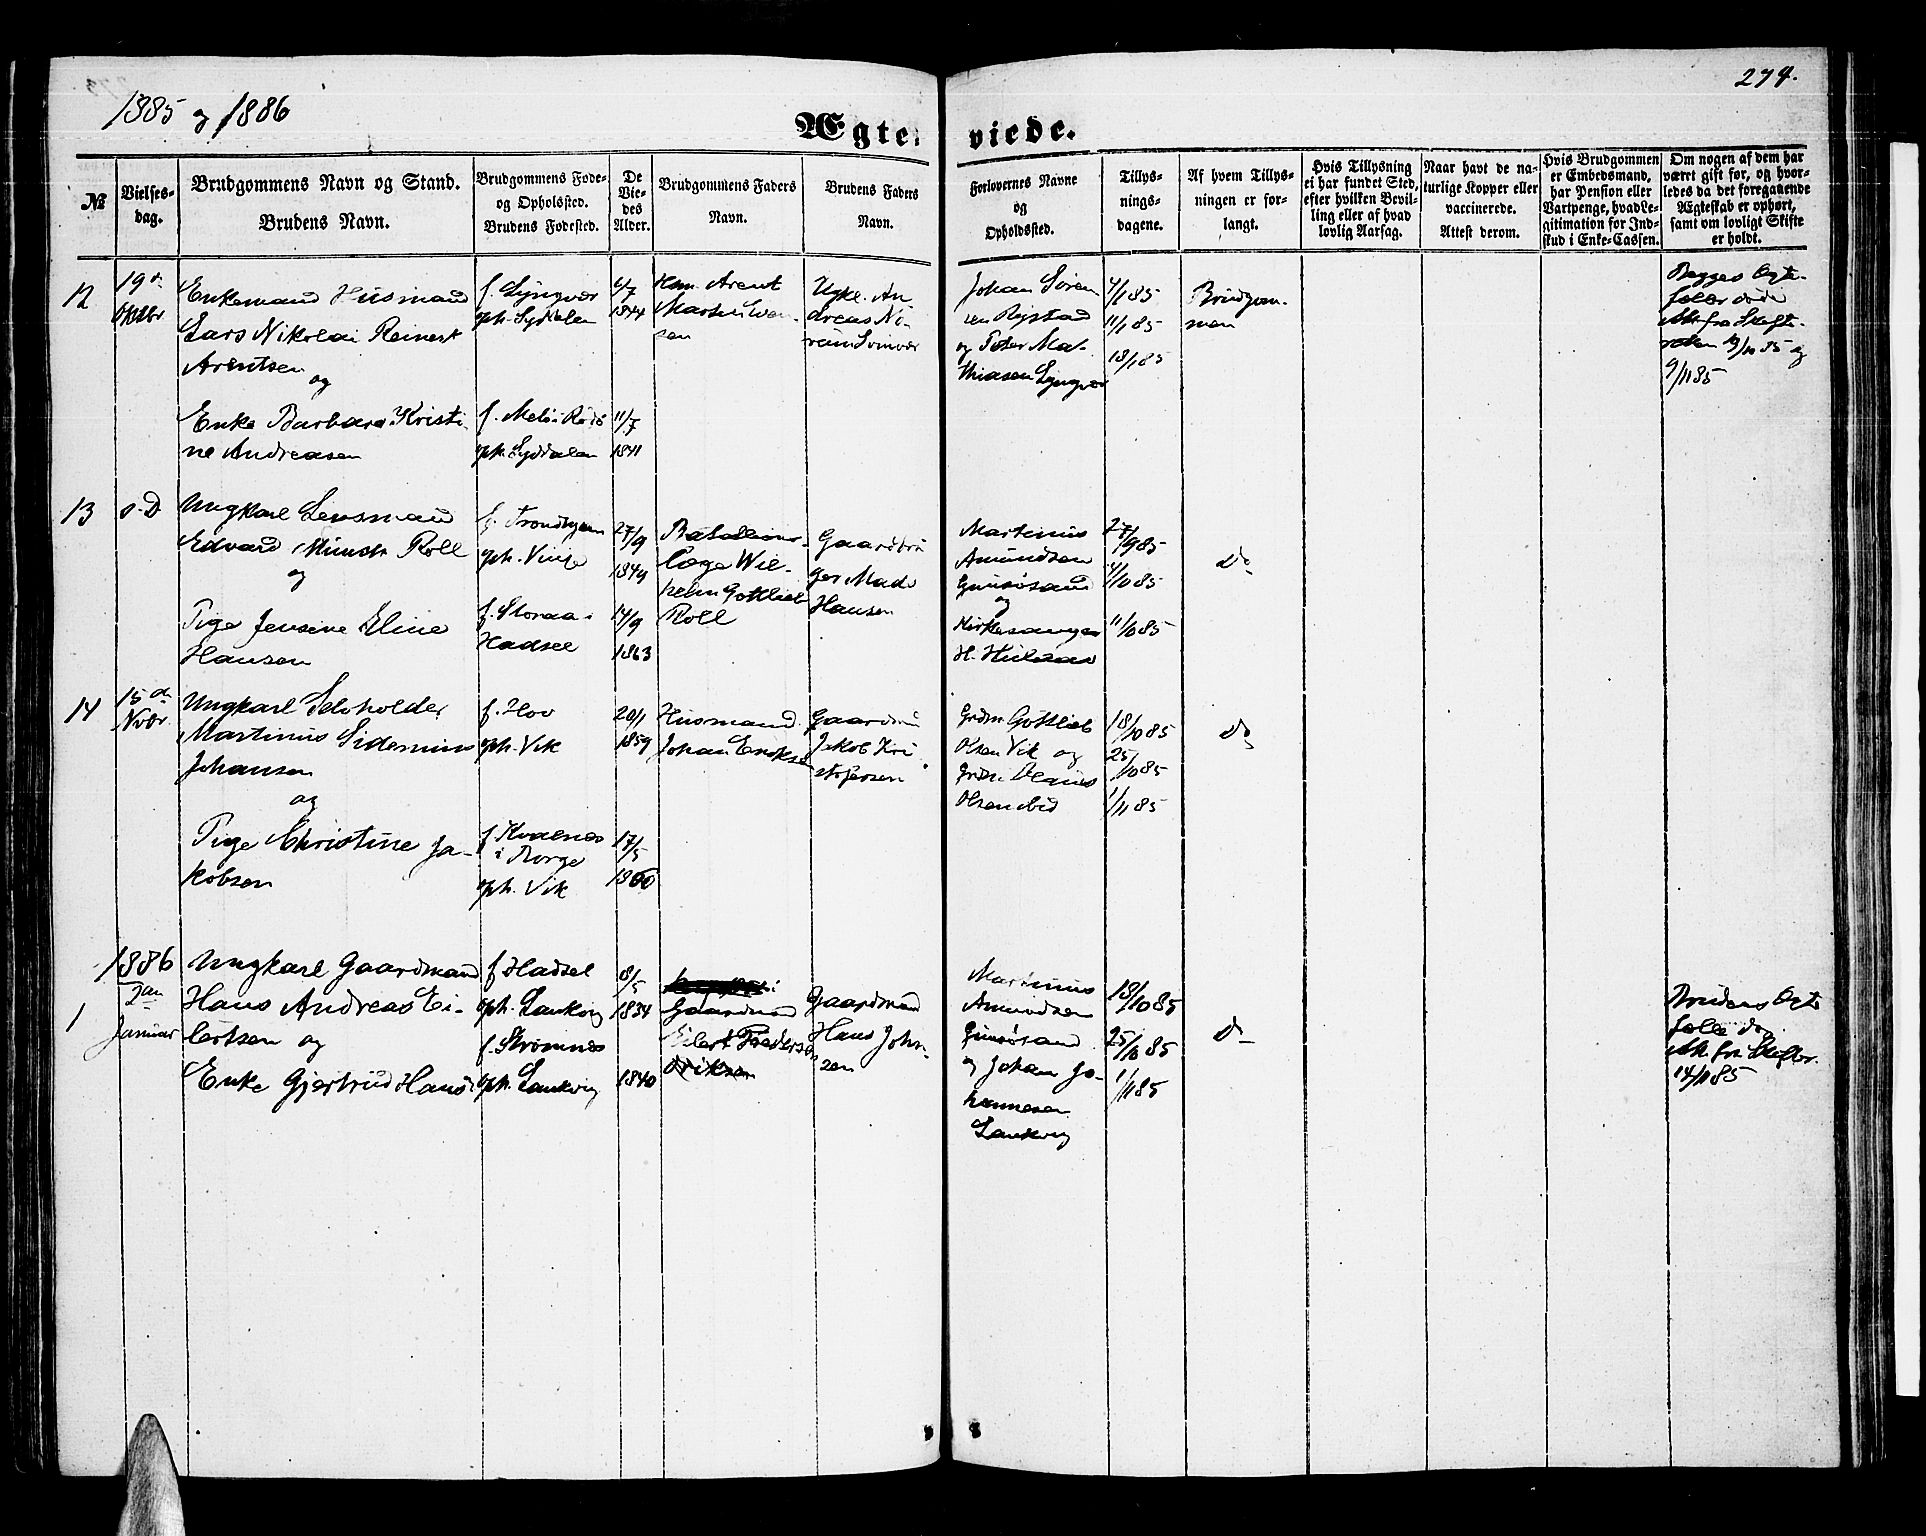 274.
1885 og 1886
Ægte-
viede.
№
Vielses-
dag.
Brudgommens Navn og Stand.
Brudens Navn.
Brudgommens Føde-
og Opholssted.
Brudens Fødested.
De
Vie-
des
Alder.
Brudgommens Faders
Navn.
Brudens Faders
Navn.
Forlovernes Navne
og
Opholdssted.
Tillys-
nings-
dagene.
Af hvem Tillys-
ningen er for-
langt.
Hvis Tillysning
ei har fundet Sted,
efter hvilken Bevil-
ling eller af hvad
lovlig Aarsag.
Naar havt de na-
turlige Kopper eller
vaccinerede.
Attest derom.
Hvis Brudgommen
er Embedsmand,
har Pension eller
Vartpenge, hvad Le-
gitimation for Ind-
skud i Enke-Cassen.
Om nogen af dem har
været gift før, og hvor-
ledes da det foregaaende
Ægteskab er ophørt,
samt om lovligt Skifte
er holdt.
12
19de
Oktbr
Enkemand Husmand
Lars Nikolai Reinert
Arentsen
og
Enke Barbara Kristi-
ne Andreasen
f. Lyngvær
oph. Sydalen
f. Melö i Rödö
oph. Sydalen
6/7
1844
11/7
1841
Hsm. Arent
Martin
sen
Ugkl. An
dreas
Svinvær
Johan Sören
sen Rystad
og Peter Ma-
thiasen Lyngvær
4/ 85
11/ 85
18/ 85
Brudgom-
men
Begges Ægte-
feller döde
Att. fra Skifte-
retten 19/10 85 og
9/11 85
13
s. D
Ungkarl Lensmand
Edvard Münster Roll
og
Pige Jensine Eline
Hansen
f. Trondhjem
oph. Vinje
f. Storaa-
Hadsel
27/9
1849
14/9
1863
Batallions-
læge Wil-
helm Gottlieb
Roll
Gaardbru
ger Mads
Hansen
Martinus
Amundsen
Gimsösand
og
Kirkesanger
H.
27/9 85
4/10 85
11/10 85
do
14
15de
Nvbr.
Ungkarl Selvholder
Martinus Sidenius
Johansen
og
Pige Christine Ja-
kobsen
f. Hov
oph. Vik
f. Kvalnes
i Borge
oph. Vik
20/1
1859
17/5
1860
Husmand
Johan Eriksen
Gaardm
Jakob Kri
stofersen
Grdm Gottlieb
Olsen Vik og
Grdm. Olaus
Olsen ibid
18/10 85
25/10 85
1/11 85
do
1886
1
2den
Januar
Ungkarl Gaardmand
Hans Andreas Ei-
lertsen og
Enke Gjertrud Hans
f Hadsel
oph. Laukvig
f. Strömnes
oph. Laukvig
8/5
1834
1840
Gaardmd
Eilert Pedersen
Gaardmand
Hans John-
sen
Martinus
Amundsen
Gimsösand
og Johan Jo-
hannesen
Laukvig
18/10 85
25/10 85
1/11 85
do
Brudens Ægte
felle död
Att. fra Skifter.
14/11 85